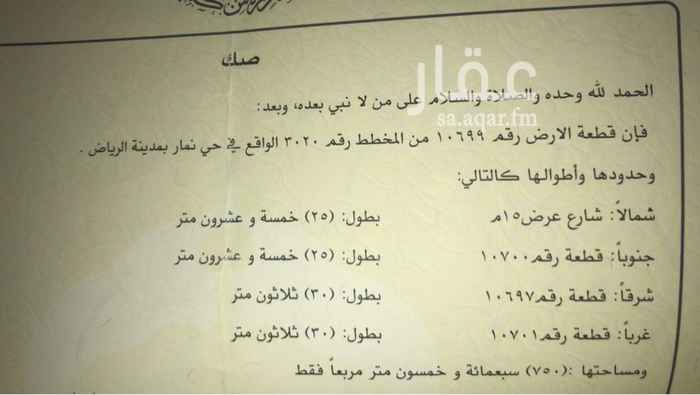 صك
الحمد لله وحده والصلاة والسلام على من لا نبي بعده، وبعد:
فإن قطعة الارض رقم ١٠٦٩٩ من المخطط رقم ٣٠٢٠ الواقع في حي نمار بمدينة الرياض .
وحدودها وأطوالها كالتالي:
شمالاً: شارع عرض١٥م بطول: (٢٥) خمسة و عشرون متر
جنوباً: قطعة رقم١٠٧٠٠ بطول: (٢٥) خمسة و عشرون متر
شرقاً: قطعة رقم١٠٦٩٧ بطول: (٣٠) ثلاثون متر
غرباً: قطعة رقم١٠٧٠١ بطول: (٣٠) ثلاثون متر
ومساحتها :(٧٥٠) سبعمائة و خمسون متر مربعاً فقط
عقار
sa.aqar.fm